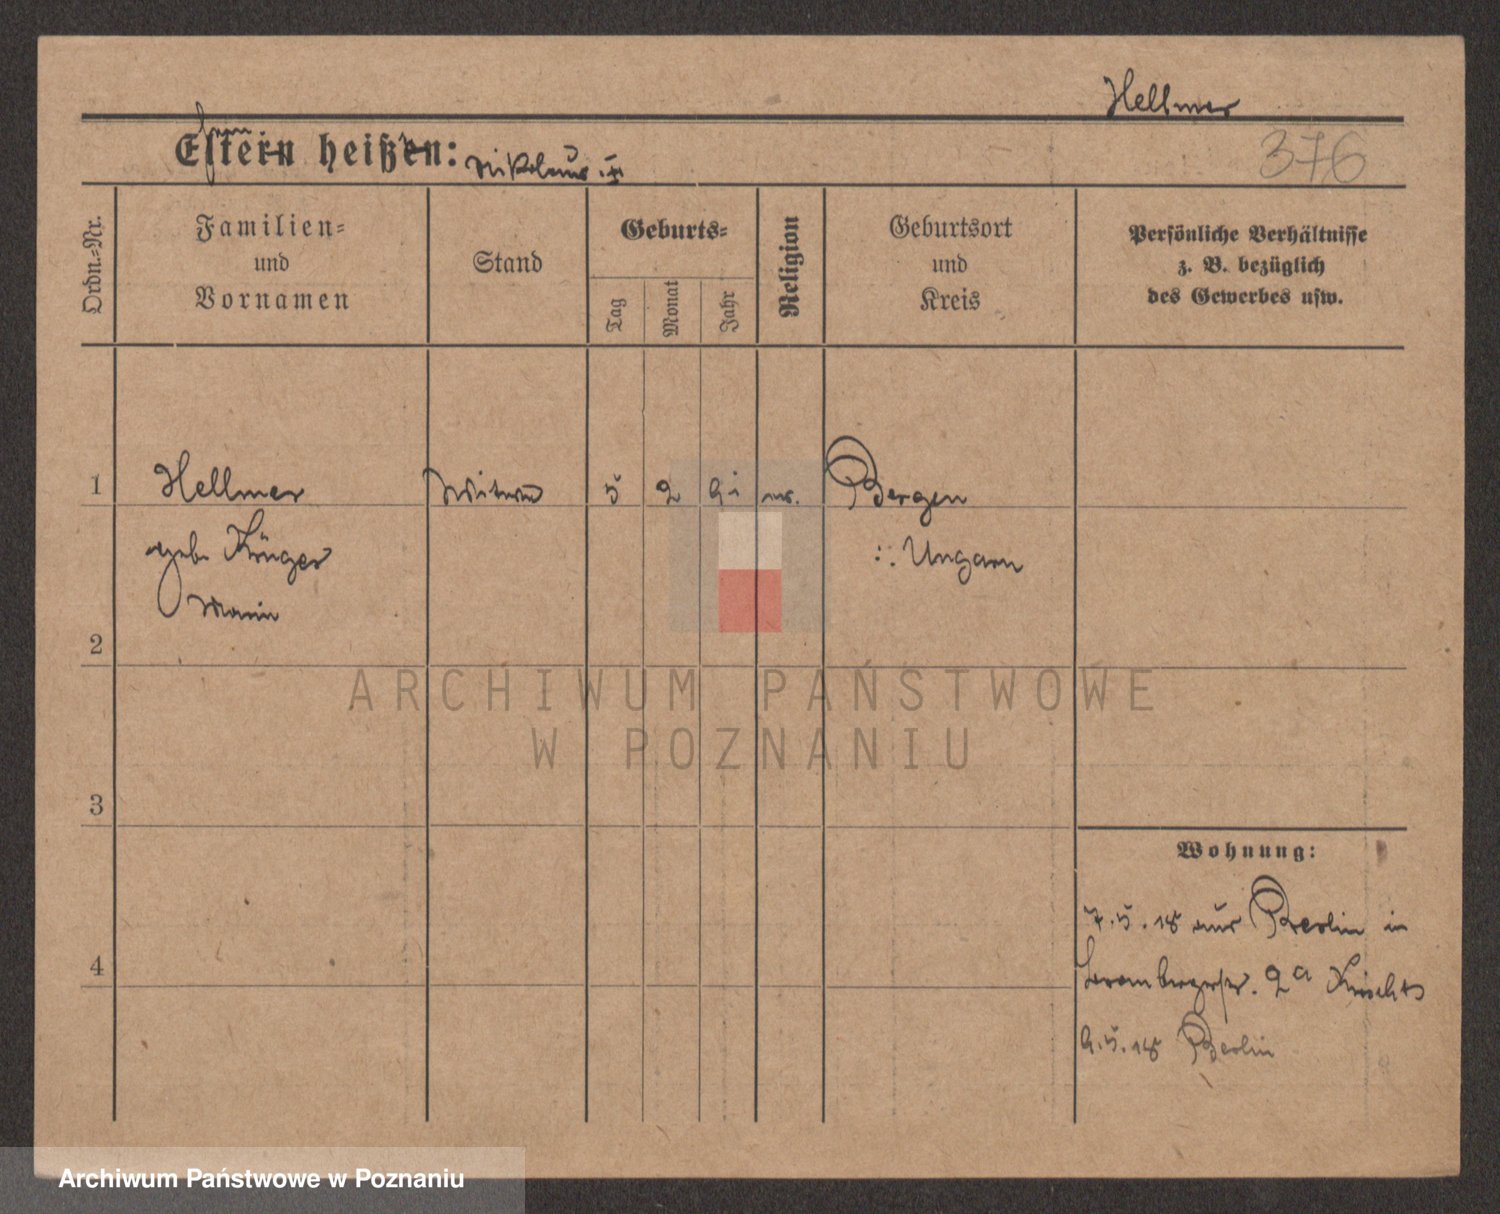 Hellmer
376
Eltern heißen: Nikolaus †
Ordn.-Nr.
Familien-
und
Vornamen
Stand
Geburts-
Tag
Monat
Jahr
Religion
Geburtsort
und
Kreis
Persönliche Verhältnisse
z. B. bezüglich
des Gewerbes usw.
1 Hellmer Witwe 5 2 91 Bergen
geb. Krüger :: Ungarn
Marie
2
3
4
ARCHIWUM PAŃSTWOWE
W POZNANIU
Wohnung:
7.5.18 aus Berlin in
2a
9.5.18 Berlin
Archiwum Państwowe w Poznaniu